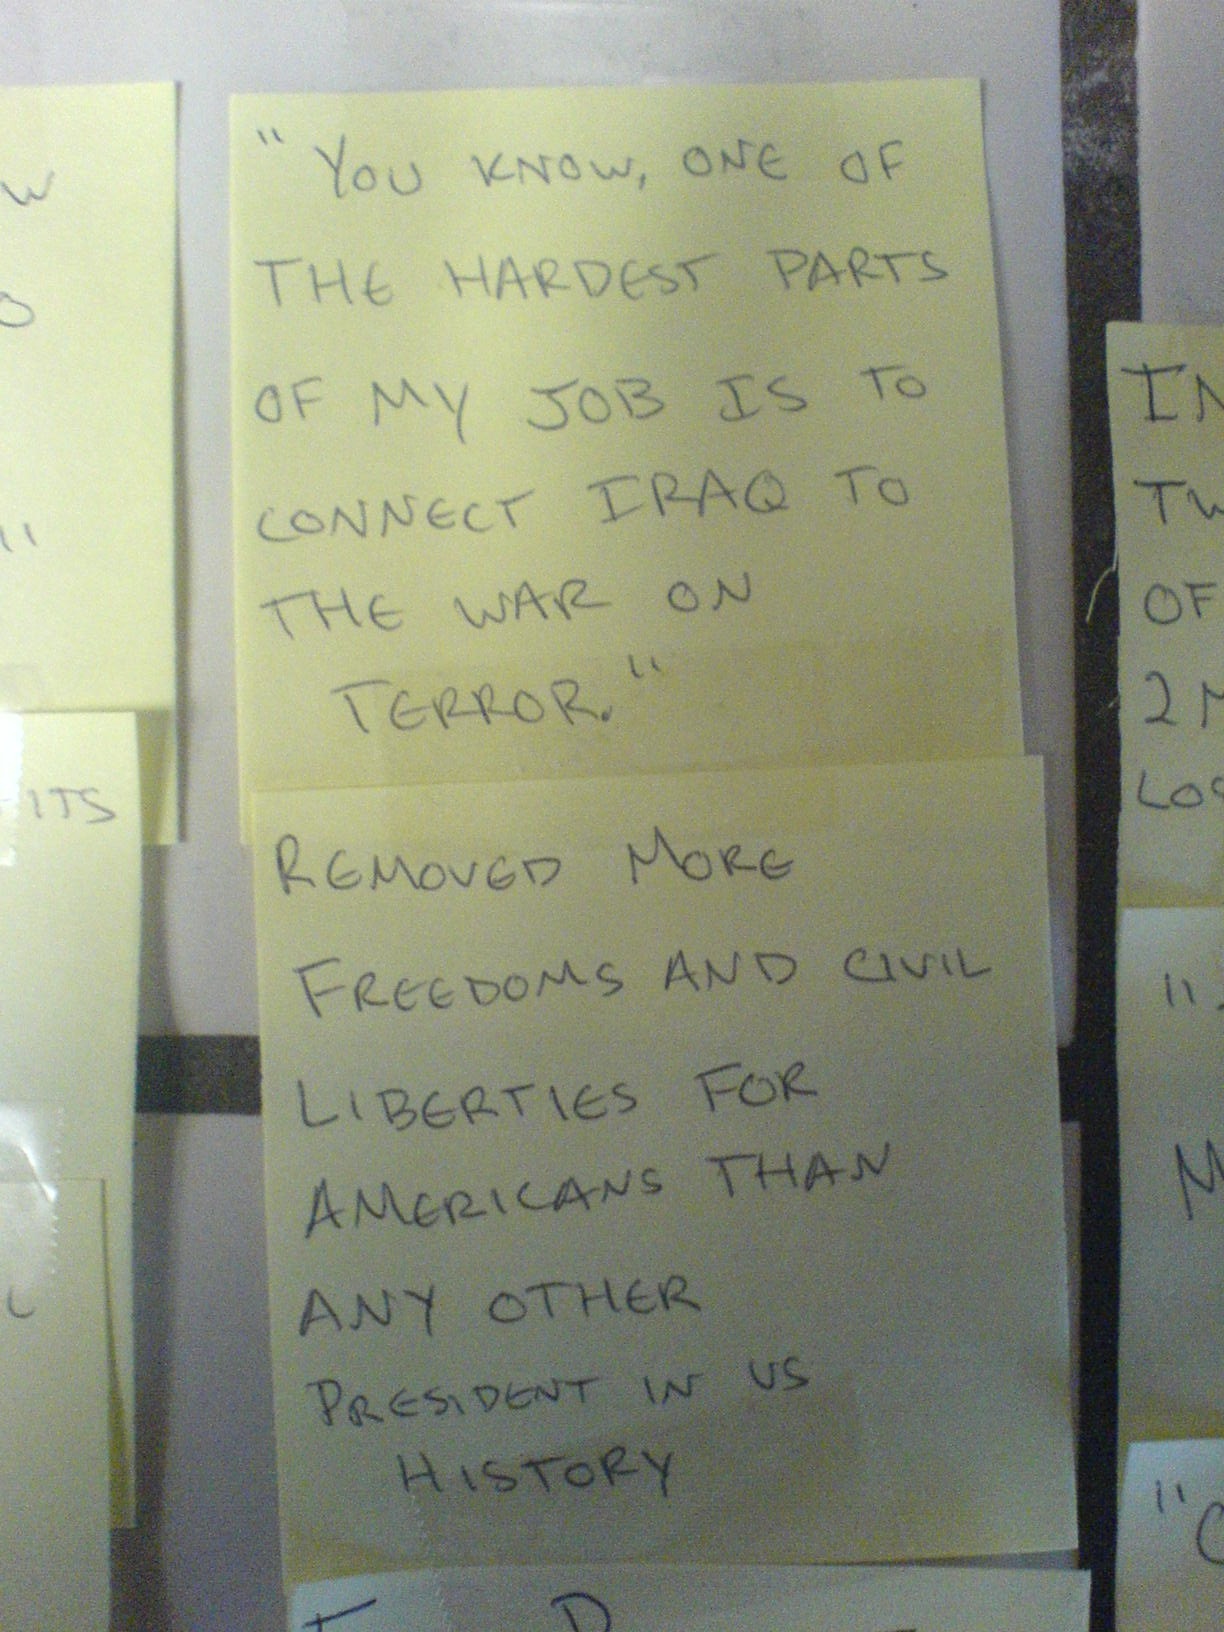 "You know, one of
the hardest parts
of my job is to
connect Iraq to
the war on
terror."
Removed more
freedoms and civil
liberties for
Americans than
any other
president in US
history
ITS
OF